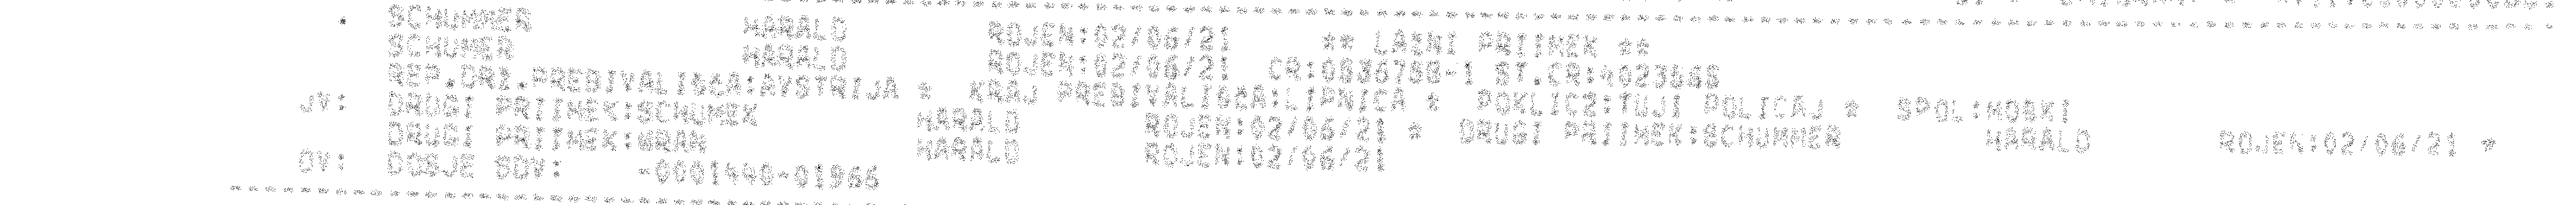 SCHUMMER HARALD ROJEN:02/06/21 ** LAZNI PRIIMEK **
SCHUMER HARALD ROJEN:02/06/21 CR:0636788-1 ST.CR:4023666
REP.DRZ.PREBIVALISCA:AVSTRIJA * KRAJ PREBIVALISCA:LIPNICA * POKLIC2:TUJI POLICAJ * SPOL:MOSKI
JV: DRUGI PRIIMEK:SCHUMEK HARALD ROJEN:02/06/21 * DRUGI PRIIMEK:SCHUMMER HARALD ROJEN:02/06/21 *
DRUGI PRIIMEK:WRAN HARALD ROJEN:02/06/21
OV: DOSJE SDV: -0001440-01966